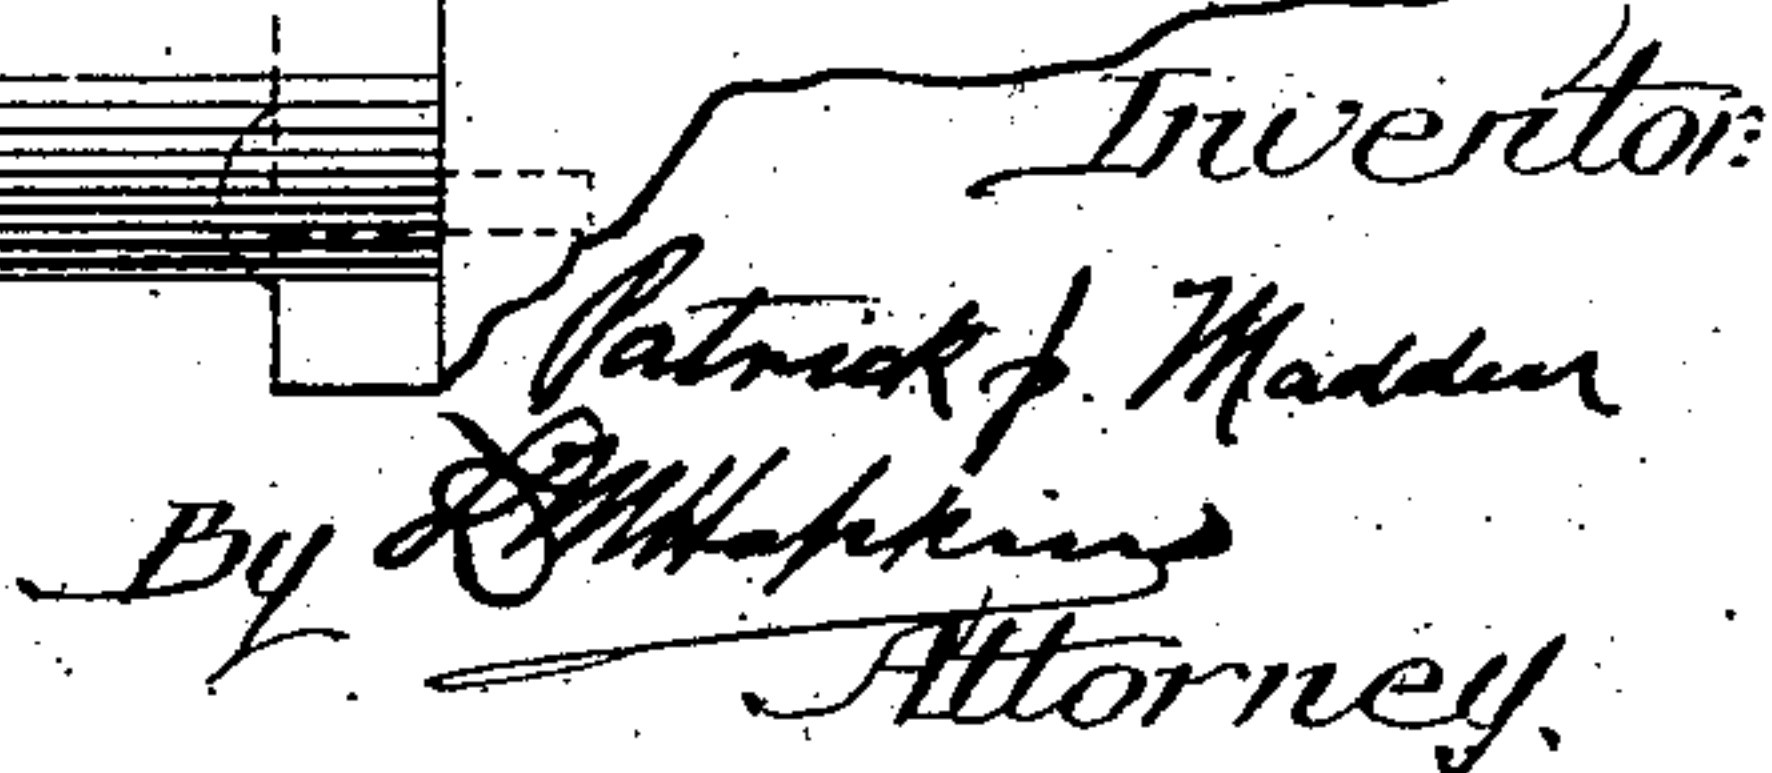 Inventor:
Patrick J. Madden
By Hopkins
Attorney.